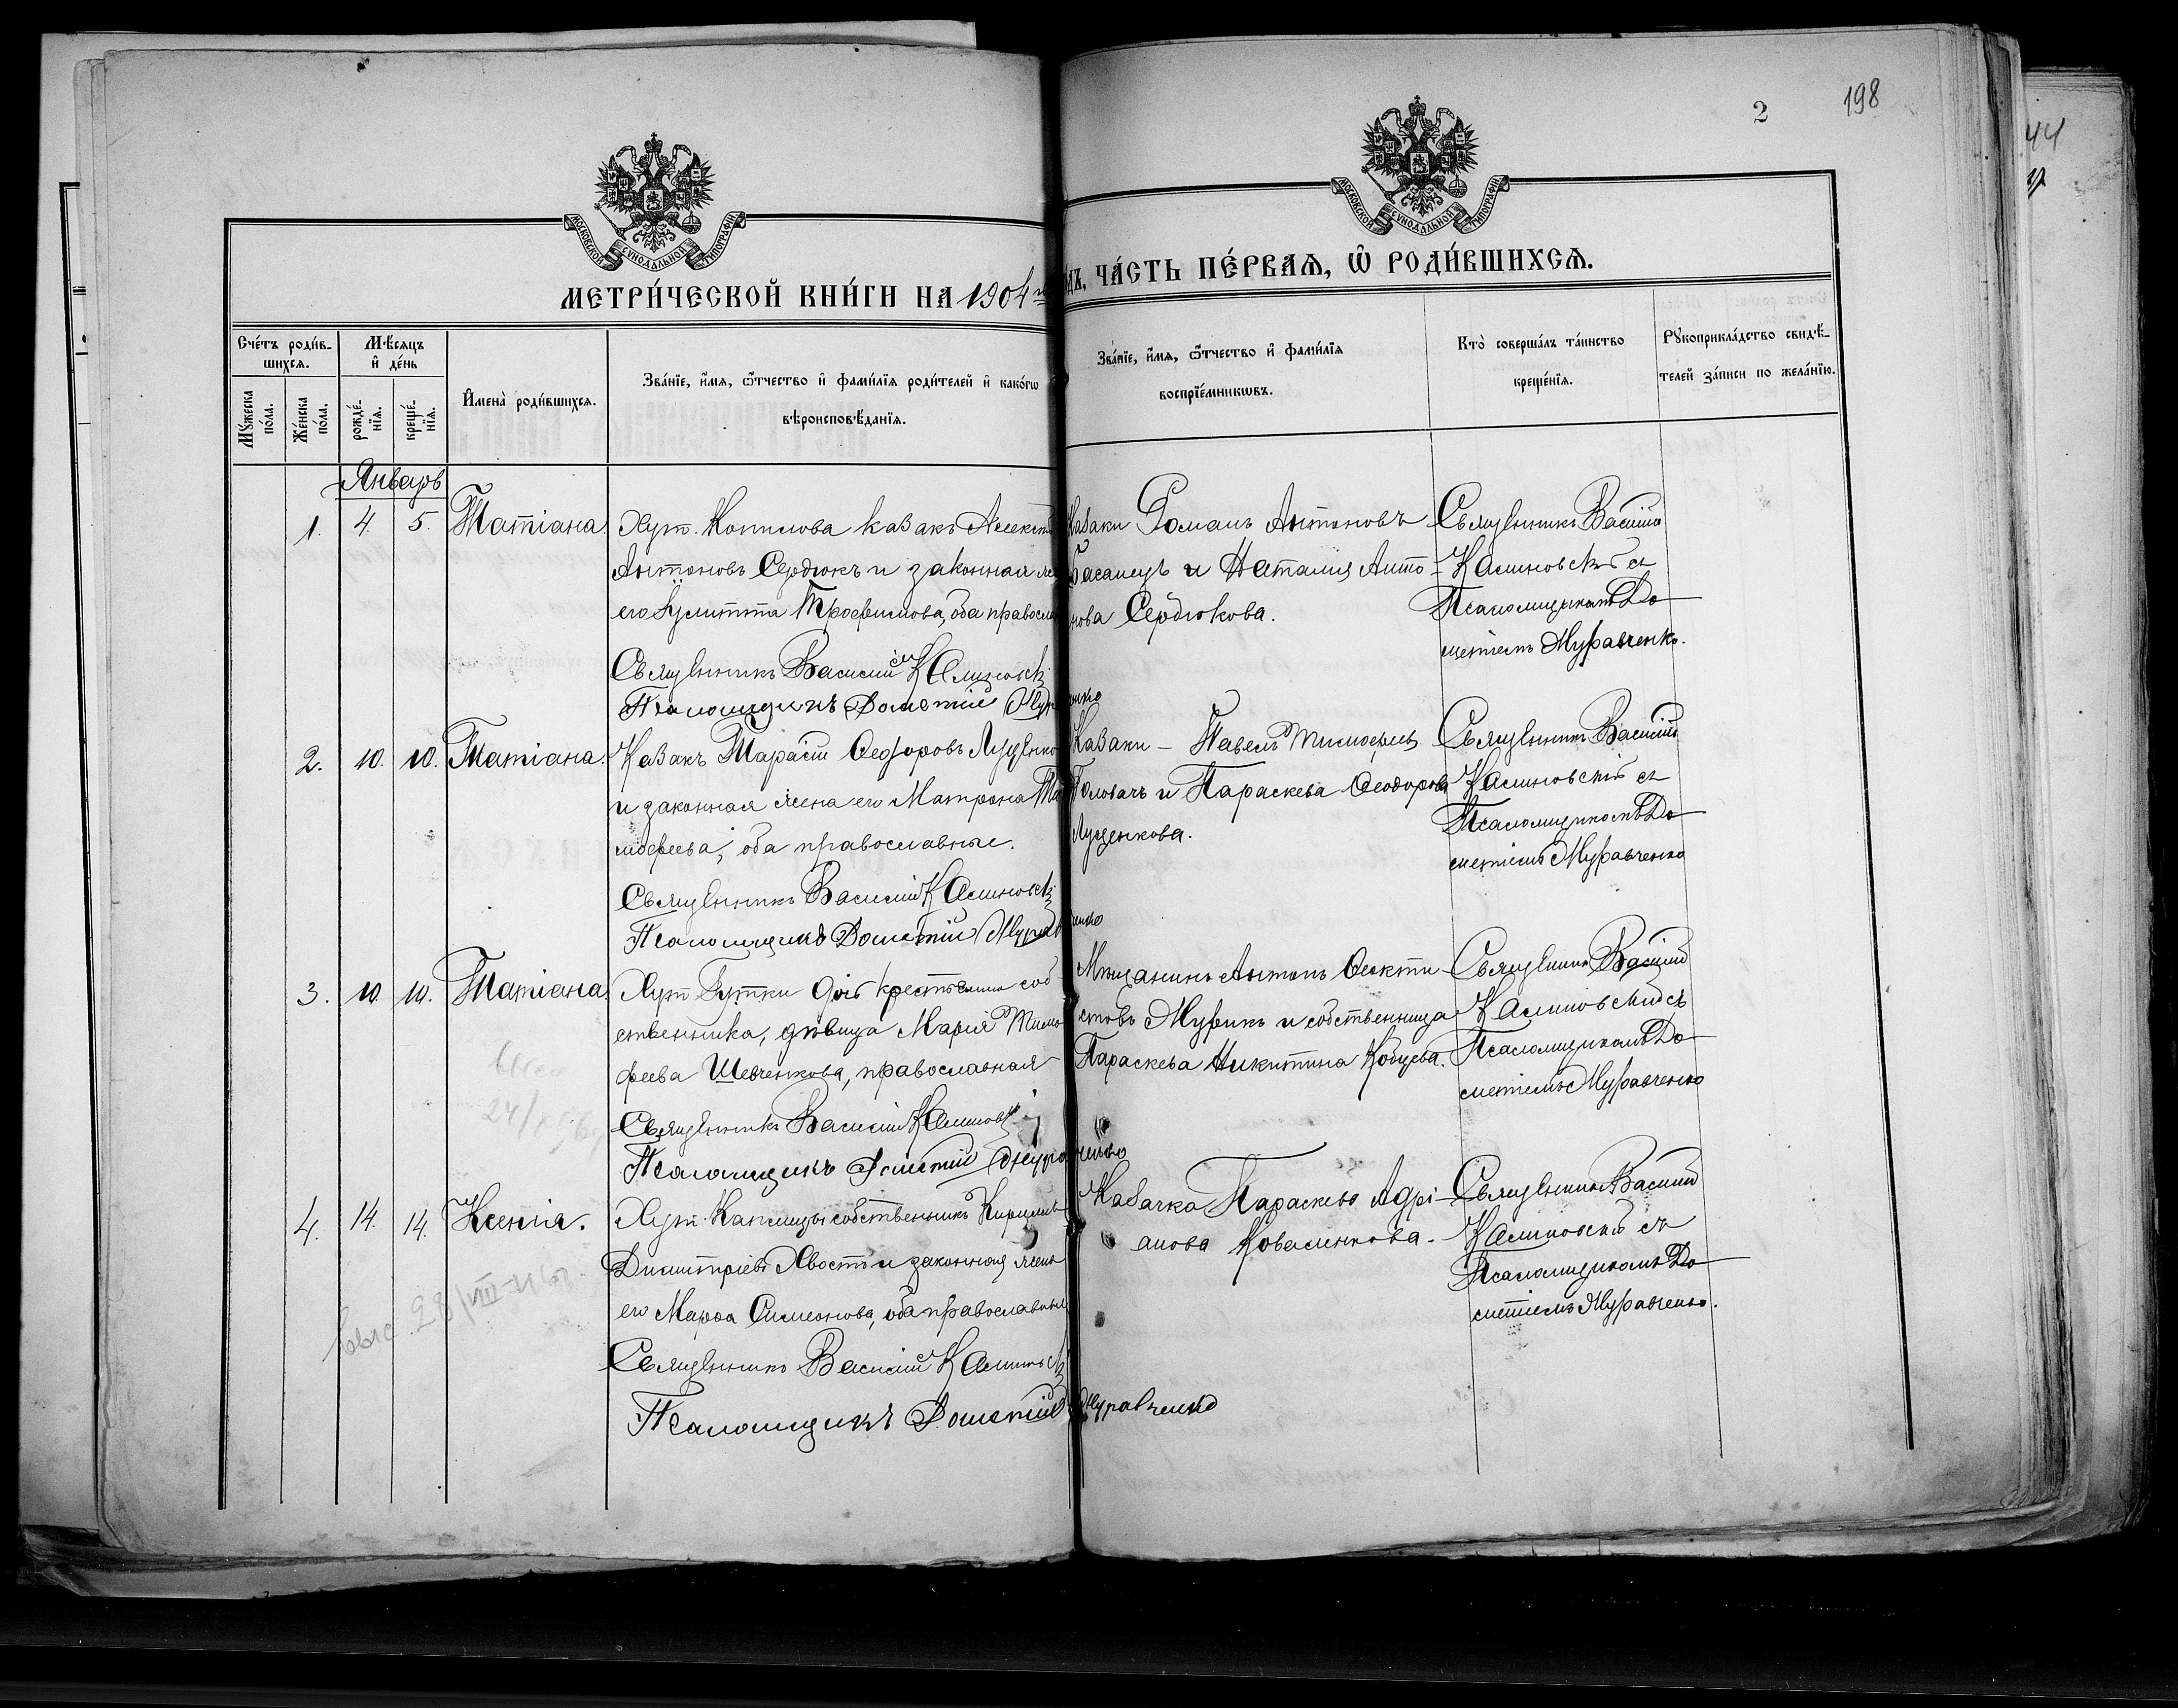 2
198
44
МОСКОВСКОЙ СѴНОДАЛЬНОЙ ТИПОГРАФІИ
МОСКОВСКОЙ СѴНОДАЛЬНОЙ ТИПОГРАФІИ
МЕТРИ́ЧЕСКОЙ КНИ́ГИ НА 1904
ЧА́СТЬ ПЕ́РВАѦ, Ѡ҆ РОДИ́ВШИХСѦ.
Сче́тъ роди́в-
шихсѧ.
Мѣ́сѧцъ
и҆ де́нь
Мꙋ́жеска по́ла.
Же́нска по́ла.
рожде́-
нїѧ.
креще́-
нїѧ.
И҆мена̀ роди́вшихсѧ.
Зва́нїе, и҆́мѧ, ѻ҆́тчество и҆ фами́лїѧ роди́телей и҆ како́гѡ
вѣроисповѣ́данїѧ.
Зва́нїе, и҆́мѧ, ѻ҆́тчество и҆ фами́лїѧ
воспрїе́мникѡвъ.
Кто̀ соверша́лъ та́инство
креще́нїѧ.
Рꙋкоприкла́дство свидѣ́-
телей за́писи по жела́нїю.
Январь
1. 4. 5. Татіана.
Хут. Копилова казакъ
Антоновъ Сердюкъ и законная
его Трофимова, оба
Священникъ Василій
Псаломщикъ Дометій
Казаки Романъ Антоновъ
Басанецъ и Наталия Анто-
нова Сердюкова.
Священникъ Василій
Калиновскій съ
Псаломщикомъ До
метіемъ Муравченко.
2. 10. 10. Татіана.
Казакъ Тарасій Ѳеодоровъ Луценко
и законная жена его Матрона
моѳеева, оба православные.
Священникъ Василій Калиновскій
Псаломщикъ Дометій Муравченко
Казаки - Павелъ Тимоѳеевъ
Головачъ и Параскева Ѳеодорова
Луценкова.
Священникъ Василій
Калиновскій съ
Псаломщикомъ До
метіемъ Муравченко
3. 10. 10. Татіана.
Хут. Гутки дочь крестьянина соб-
ственника, дѣвица Марія Тимо
феева Шевченкова, православная
Священникъ Василій
Псаломщикъ Дометій Муравченко
Мѣщанинъ Антонъ Ѳеокти-
стовъ Мурикъ и собственница
Параскева Никитина Кобцева.
Священникъ Василій
Калиновскій съ
Псаломщикомъ До
метіемъ Муравченко
4. 14. 14. Ксенія.
Хут. Каплицы собственникъ Кириллъ
Димитріевъ Хвостъ и законная жена
его Марѳа Симеонова, оба православные
Священникъ Василій Калиновскій
Псаломщикъ Дометій Муравченко
Казачка Параскева Адрі-
анова Коваленкова.
Священникъ Василий
Калиновскій съ
Псаломщикомъ До
метіемъ Муравченко.